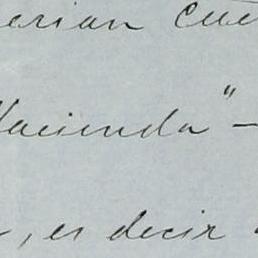 erian
Hacienda" —
, es decir